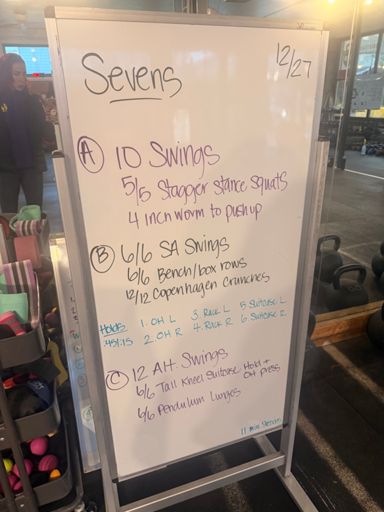 Sevens
12/27
A 10 Swings
5/5 Stagger stance squats
4 inch worm to push up
B 6/6 SA Swings
6/6 Bench/box rows
12/12 Copenhagen Crunches
Holds 1. OH L 3. Rack L 5. Suitcase L
:45/:15 2. OH R 4. Rack R 6. Suitcase R
C 12 Alt Swings
6/6 Tall Kneel Suitcase Hold + OH press
6/6 Pendulum Lunges
11 min